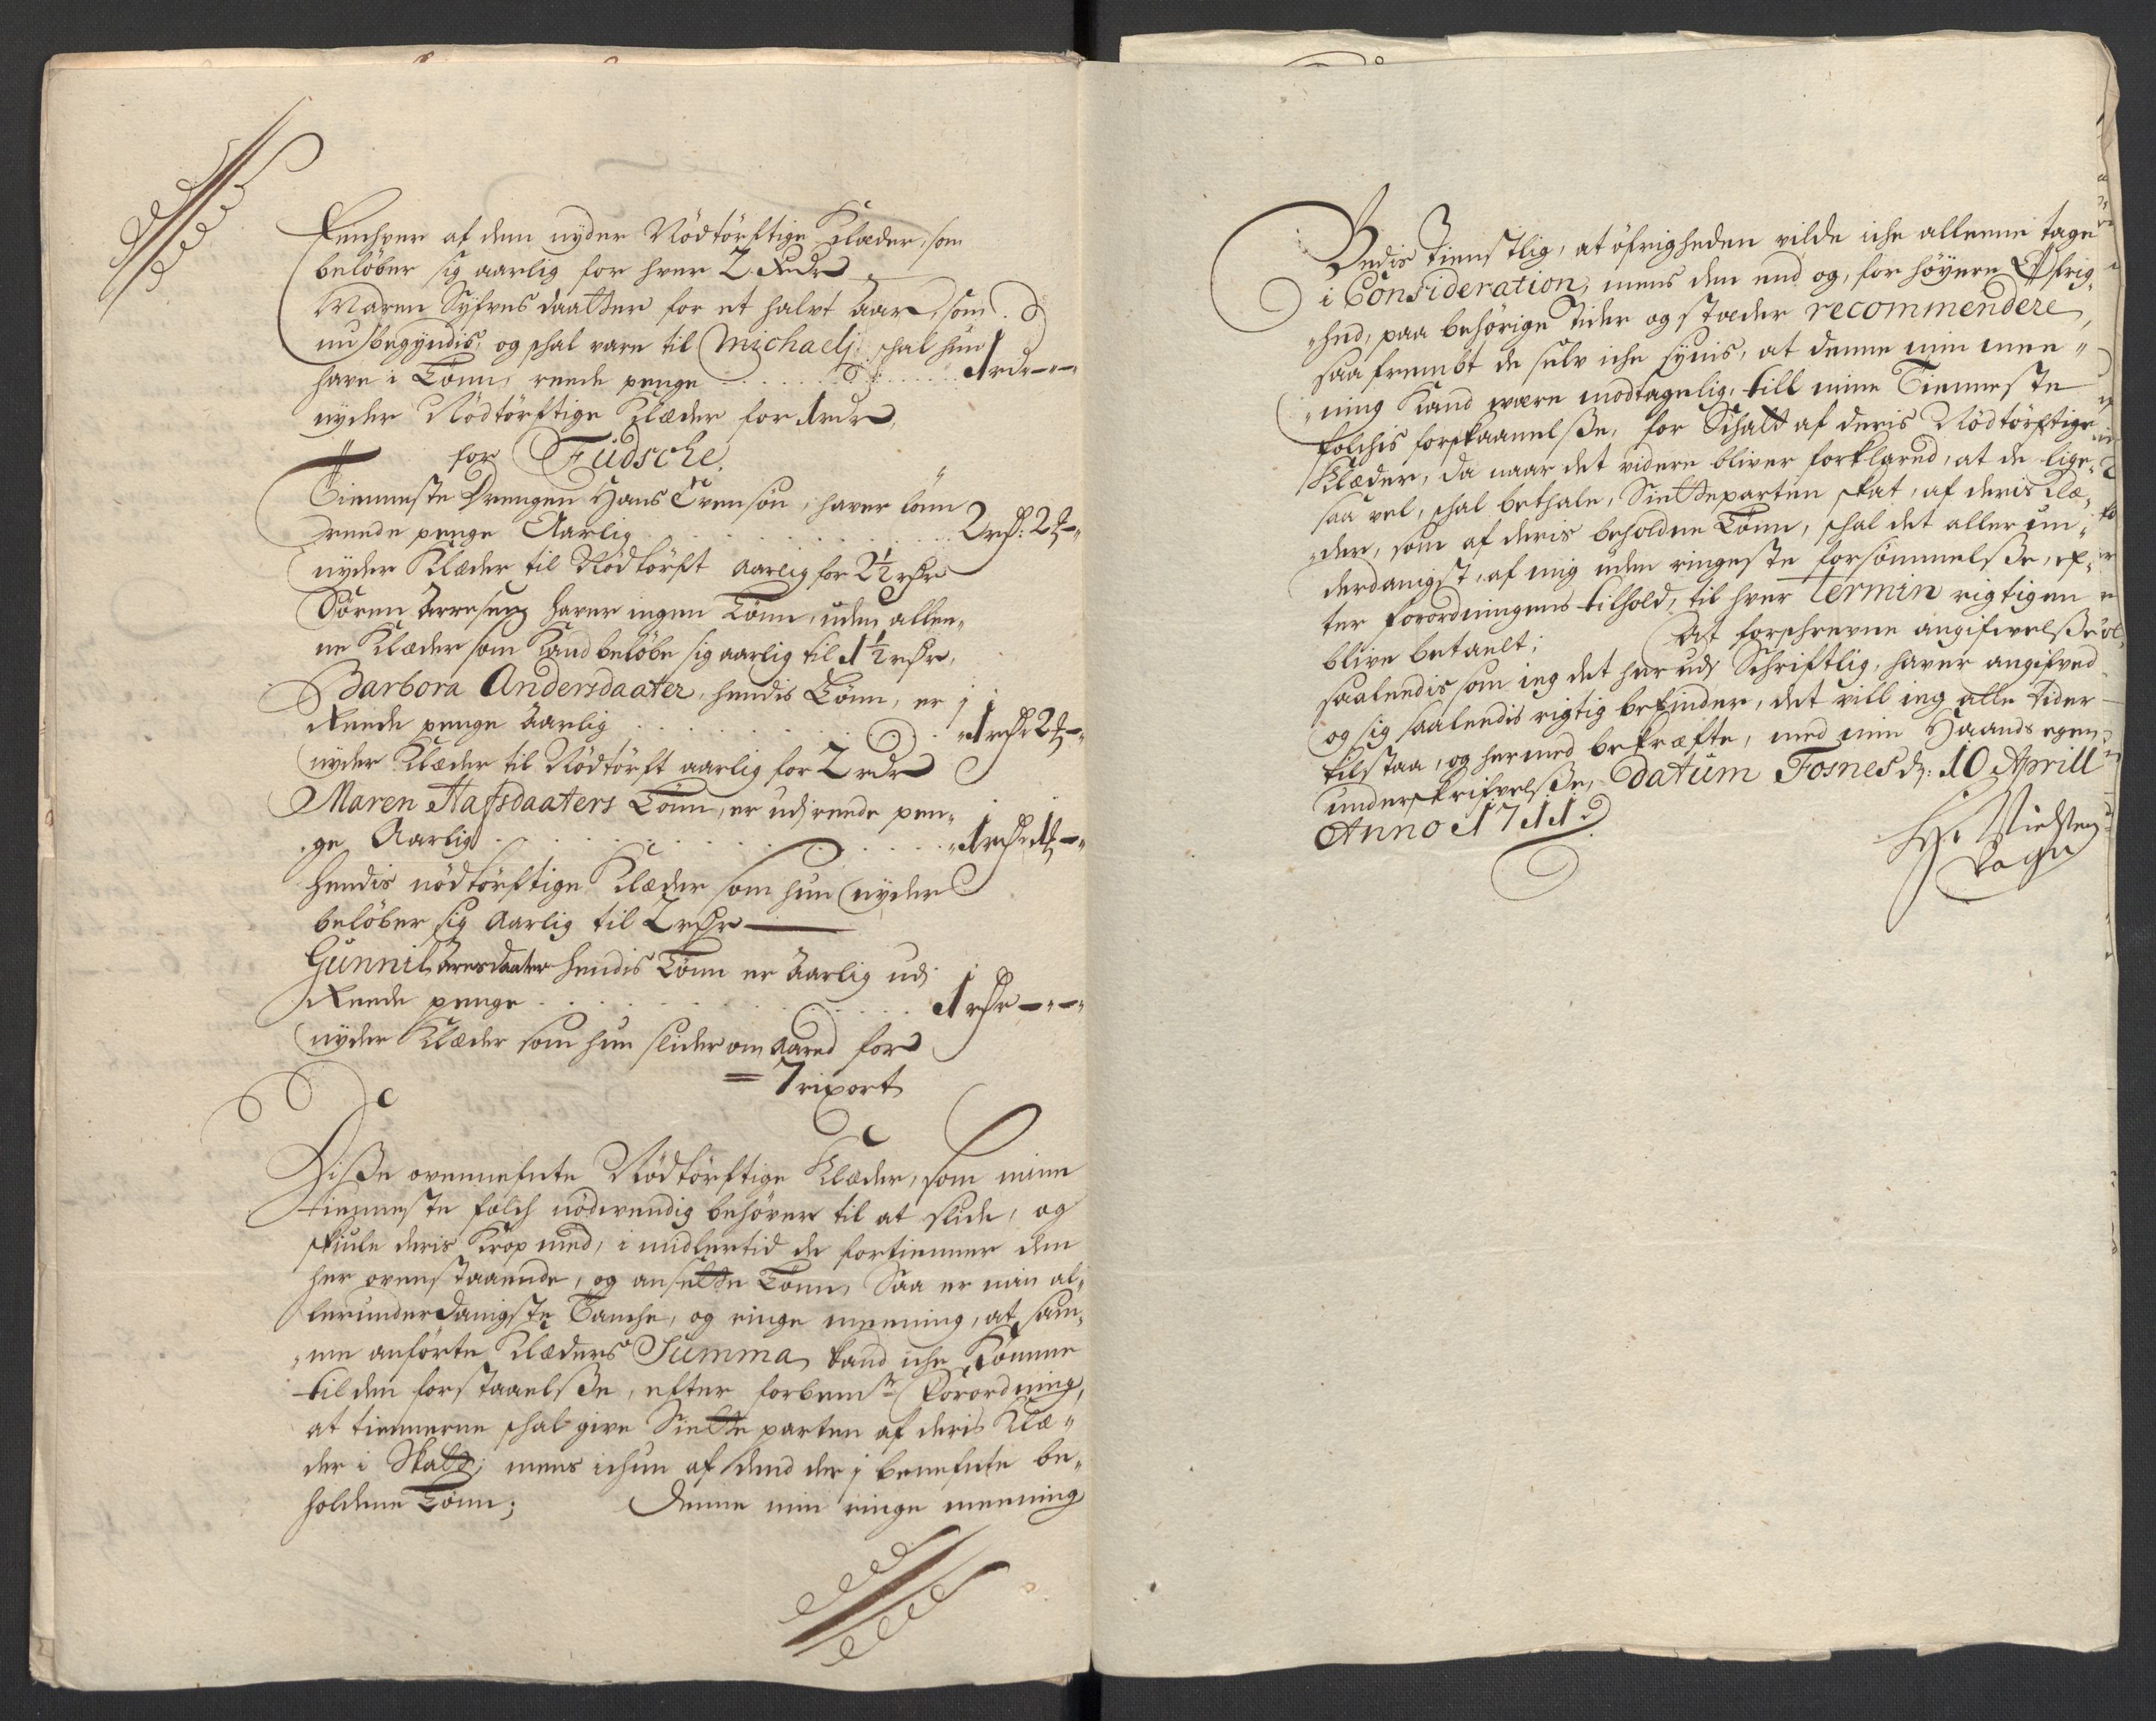 Eenhver af dem nyder Nödtörftige Klæder, som
belöber sig aarlig for hver 2 Rdr
Maren Syfversdaatter for et halvt Aar, som
nu begyndis, og schal vare til Michaelj schal hun
have i Lönn, reede penge . . . . . . . . 1 rdr - " - "
nyder Nödtörftige Klæder for 1 rdr
for Fudsche.
Tienneste Drengen Hans Evensön, haver lönn
reede penge Aarlig . . . . . . . . 2 rdr: 2 -"
nyder Klæder til Nödtörft aarlig for 2½ rdr
Sören Arresen haver ingen Lönn, uden allen,,
ne Klæder som Kand belöbe sig aarlig til 1½ rdr,
Barbora Andersdaater, hendis Lönn, er j
Reede penge aarlig . . . . . . . . 1 rdr 2 -"
nyder Klæder til Nödtörft aarlig for 2 rdr
Maren Hafsdaaters Lönn, er udj reede pen,,
ge Aarlig . . . . . . . . 1 rdr 1 -"
hendis nödtörftige Klæder som hun nyder
belöber sig Aarlig til 2 rdr
Gunnil Aresdaater hendis Lönn er Aarlig udj
Reede penge . . . . . . . . 1 rdr - " - "
nyder Klæder som hun slider om Aared for
= 7 rixort
Disse ovennefnte Nödtörftige Klæder, som mine
tienneste folch nödvendig behöver til at slide, og
skiule deris Krop med, i midlertid de fortienner den
her ovenstaaende, og ansatte Lönn, Saa er min al,,
lerunderdanigste Tanche, og ringe meening, at sam,,
,,me anförte Klæders Summa, kand iche Komme
til den forstaaelsse, efter forbemte Forordning,
at tiennerne schal give Siette parten af deris Klæ,,
der i Skatt, mens ichun af dend der j benefnte be,,
holdene Lönn; Denne min ringe meening
Bedis tienstlig, at öfrigheden vilde iche alleene tage
i Consideration, mens den end og, for höyere Öfrig,,
,,hed, paa behörige tider og stæder recommendere,
saa frembt de selv iche synis, at denne min mee,,
,,ning Kand være modtagelig, till mine Tienneste
folchis forskaanelsse, for Schatt af deris Nödtörftige
Klæder, da naar det videre bliver forklared, at de lige,,
saa vel, schal bethale, Sietteparten skat, af deris Klæ,,
,,der, som af deris beholdne Lönn, schal det allerun,,
derdanigst, af mig uden ringeste forsömmelsse, ef,,
ter forordningens tilhold, til hver termin rigtigen
blive betaelt; At forschrevne angifvelsse
saaledis som ieg det her udj Schriftlig, haver angifved
og sig saaledis rigtig befinder, det vill ieg alle tider
tilstaa, og hermed bekræfte, med min Haands egen
underskrifvelsse, Datum Fosnes d: 10 Aprill
Anno 1711